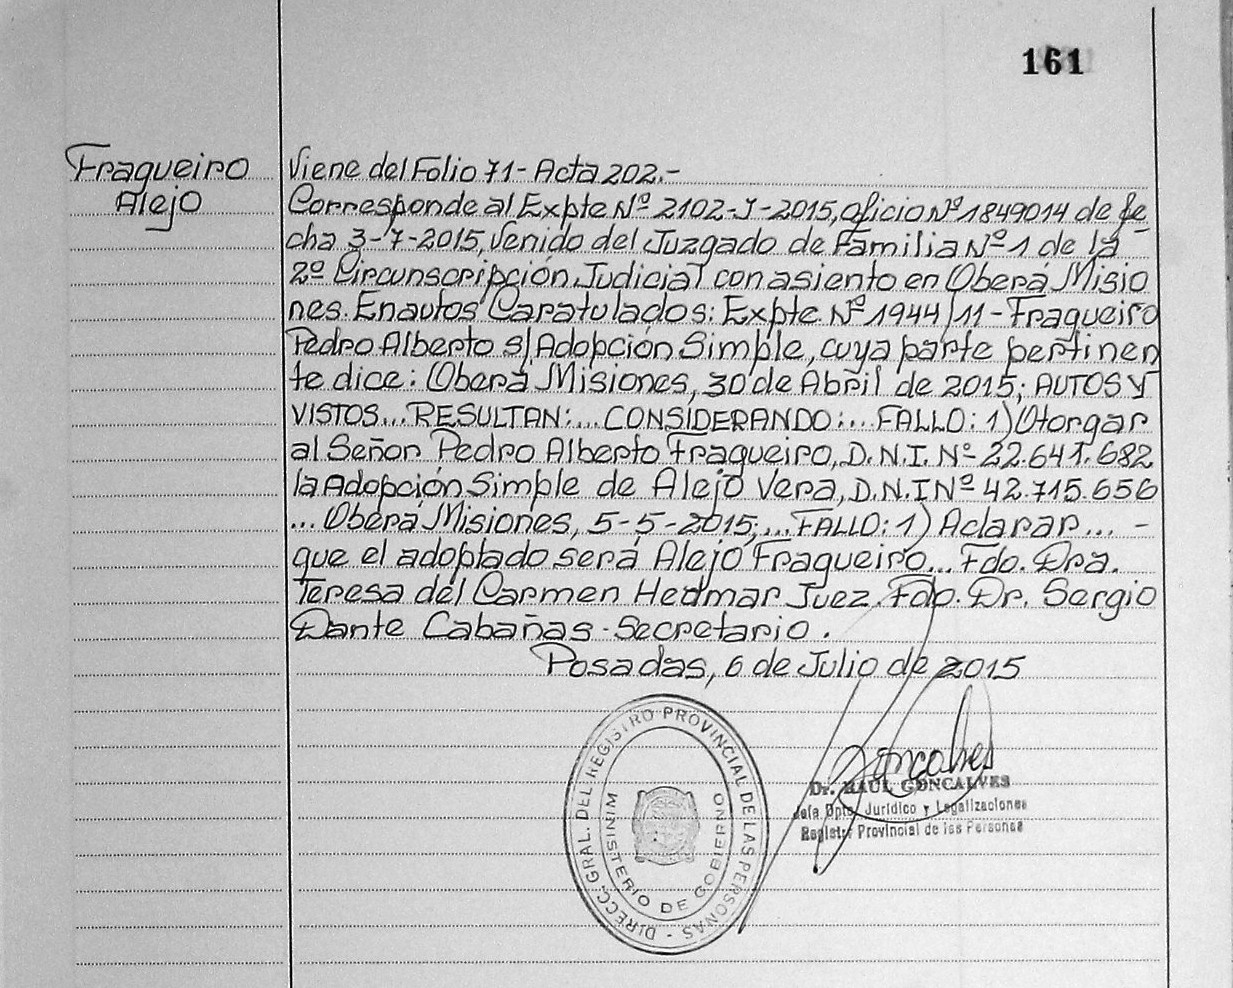 161
Fragueiro
Alejo
Viene del Folio 71- Acta 202.-
Corresponde al Expte Nº 2102-J-2015, oficio Nº 1849014 de fe
cha 3-7-2015, Venido del Juzgado de Familia Nº 1 de la
2º Circunscripción Judicial con asiento en Oberá Misio
nes. En autos Caratulados: Expte. Nº 1944/11 - Fragueiro
Pedro Alberto s/ Adopción Simple, cuya parte pertinen
te dice: Oberá Misiones, 30 de Abril de 2015; AUTOS Y
VISTOS... RESULTAN:... CONSIDERANDO:... FALLO: 1) Otorgar
al Señor Pedro Alberto Fragueiro, D.N.I. Nº 22.641.682
la Adopción Simple de Alejo Vera, D.N.I Nº 42.715.656
... Oberá Misiones, 5-5-2015;... FALLO: 1) Aclarar... -
que el adoptado será Alejo Fragueiro... Fdo. Dra.
Teresa del Carmen Hedmar Juez. Fdo. Dr. Sergio
Dante Cabañas - Secretario.
Posadas, 6 de Julio de 2015
DIRECC. GRAL. DEL REGISTRO PROVINCIAL DE LAS PERSONAS -
MINISTERIO DE GOBIERNO
Goncalves
Dr. RAUL GONCALVES
Jefe Dpto. Jurídico y Legalizaciones
Registro Provincial de las Personas